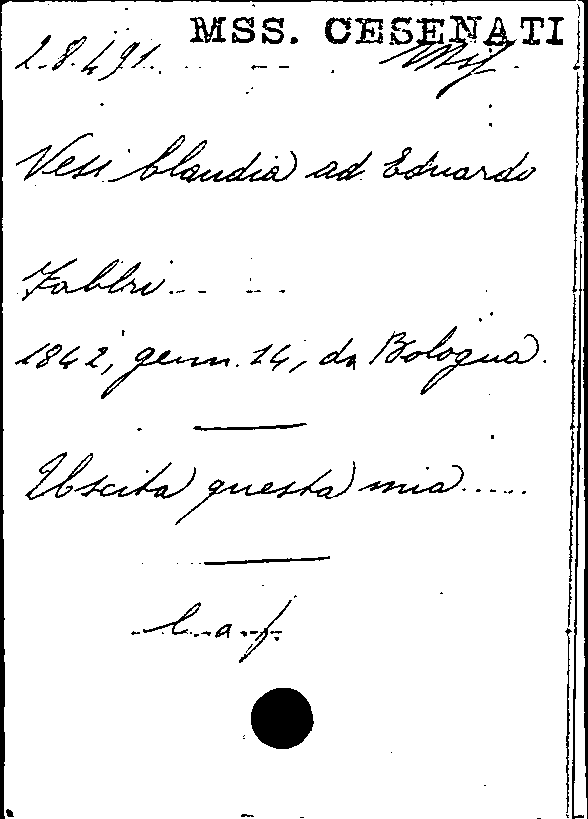 MSS. CESENATI
2.8.491. Mss.
Vesi Claudia ad Eduardo
Fabbri
1842, genn. 14, da Bologna.
Uscita questa mia.....
C. a f.